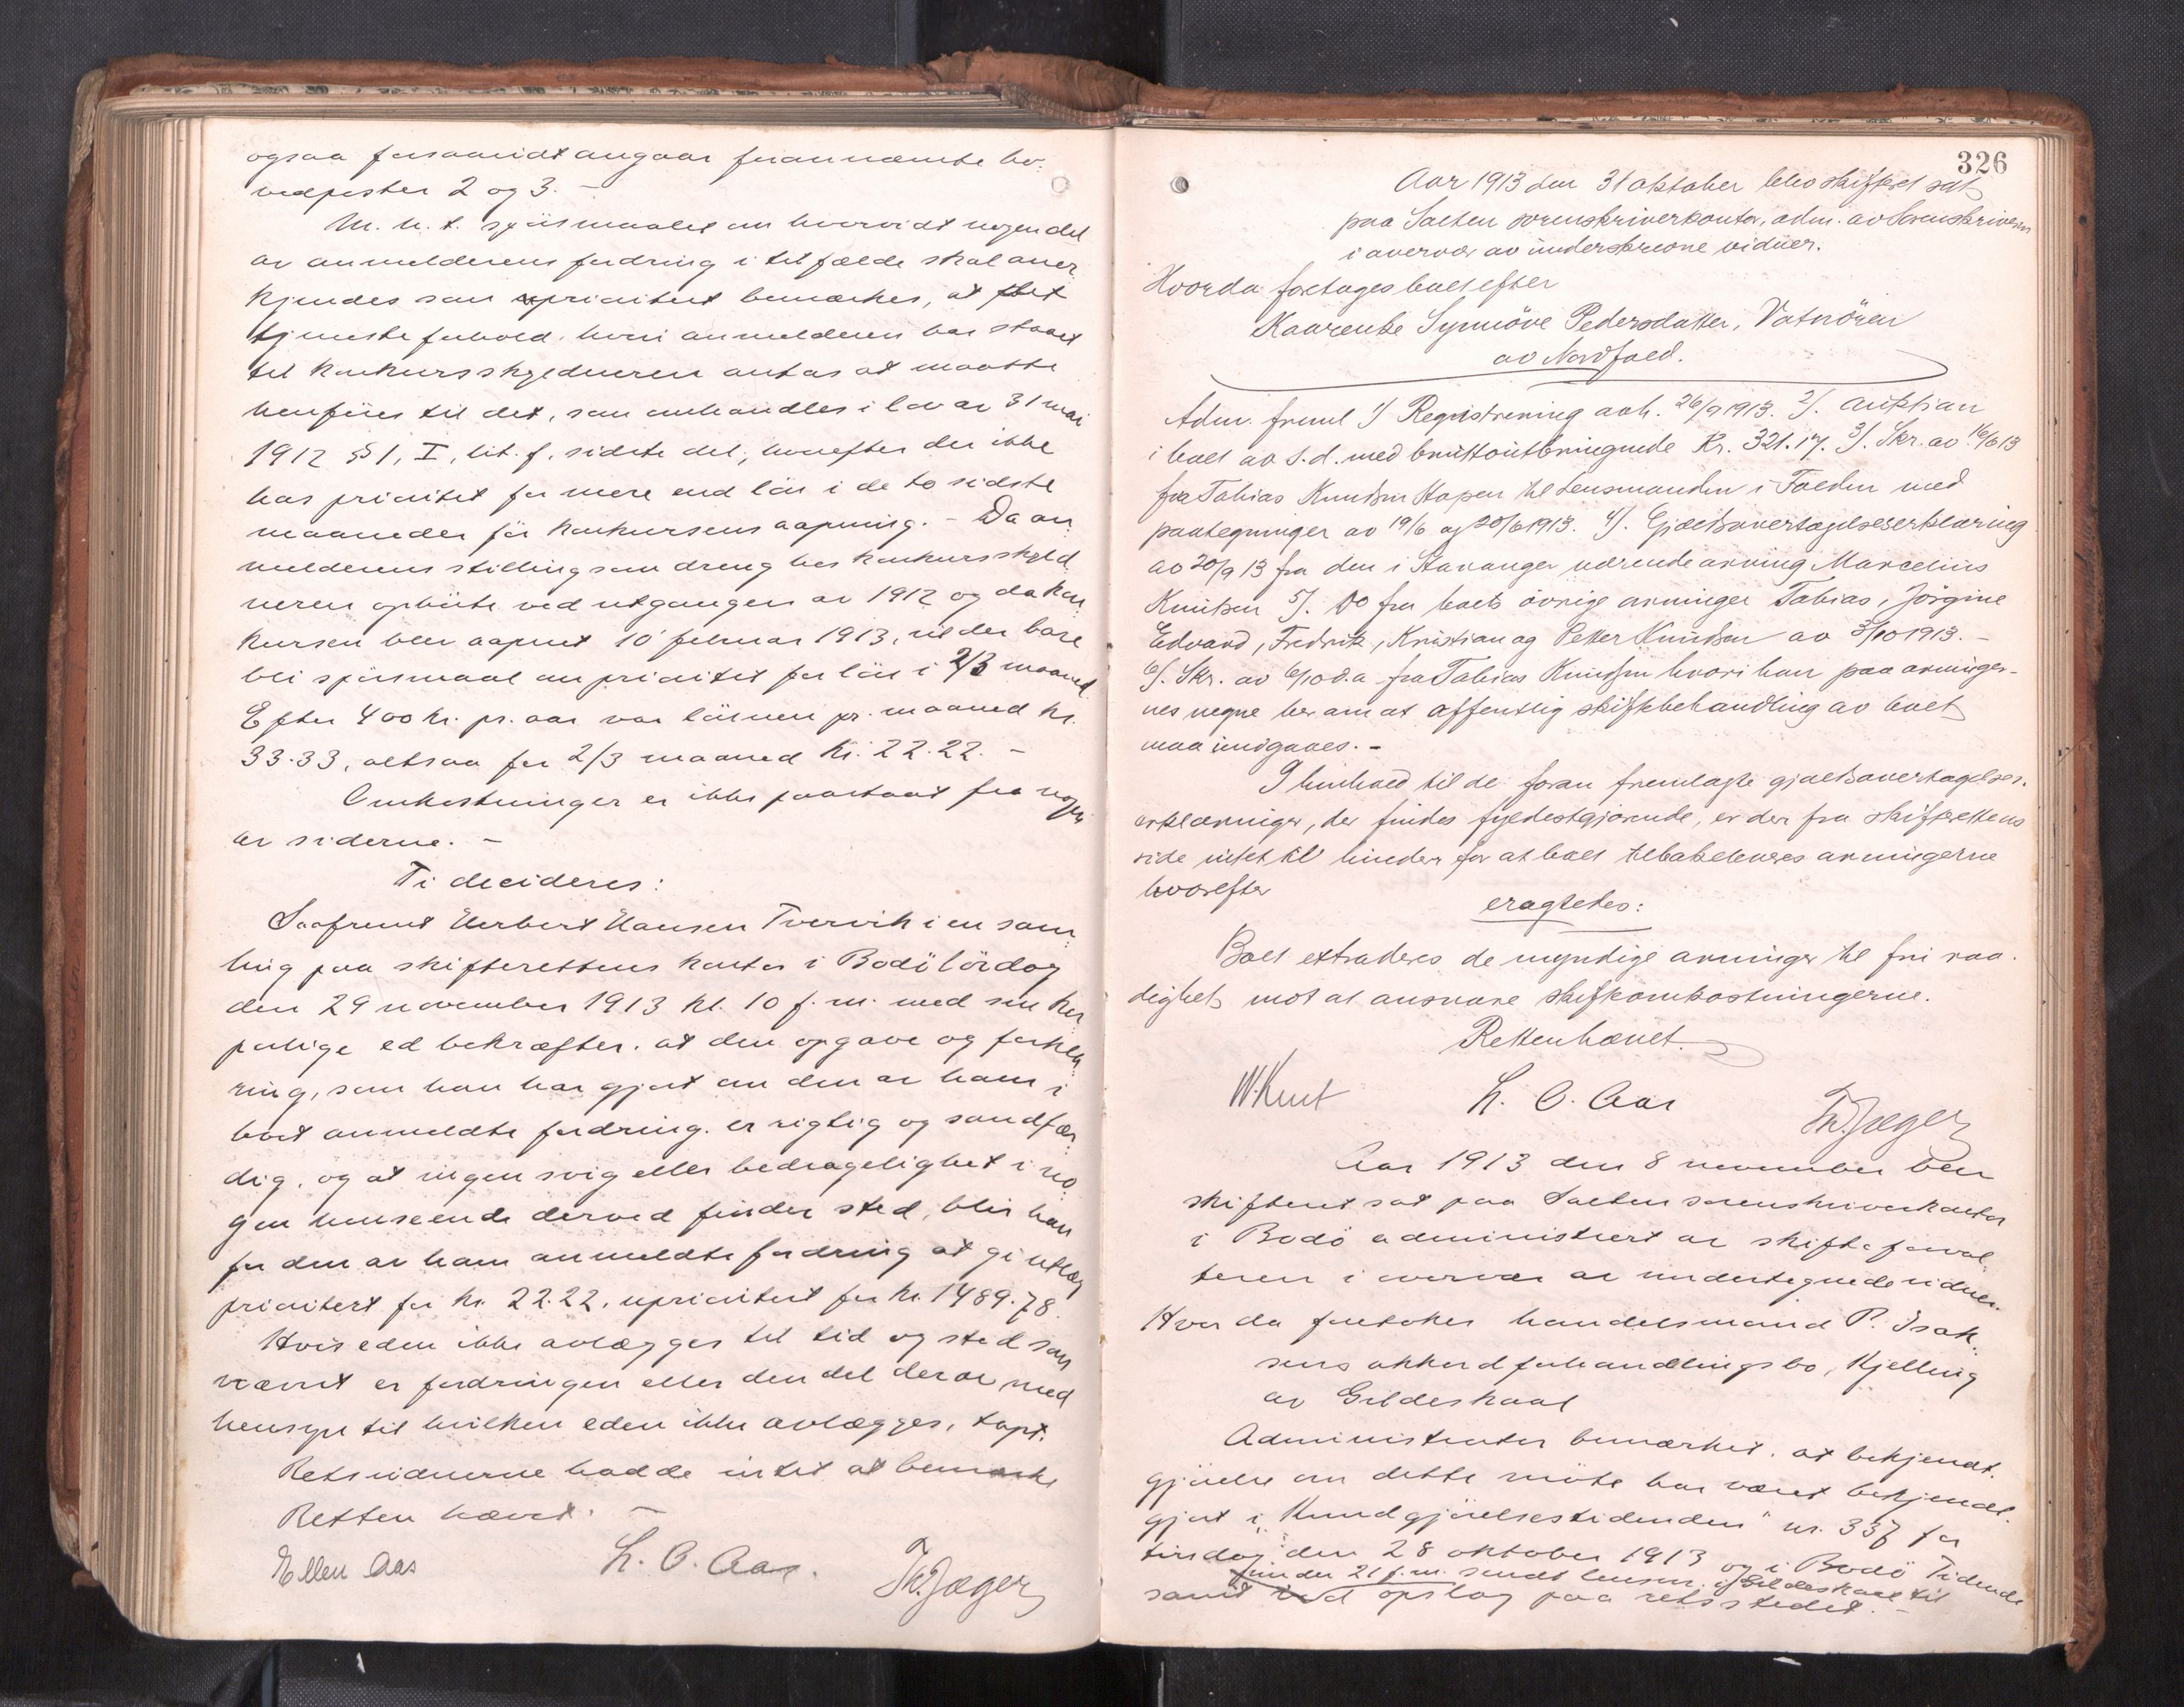 ogsaa forsaavidt angaar forannævnte ho-
vedposter 2 og 3. -
M. h. t. spørsmaalet om hvorvidt nogen del
av anmelderens fordring i tilfælde skal aner
kjendes som prioritert bemærkes, at det
tjenesteforhold, hvori anmelderen har staaet
til konkursskyldneren antas at maatte
henføres til det, som omhandles i lov av 31 mai
1912 § 1, I, lit. f, sidste del, hvorefter der ikke
has prioritet for mere end løn i de to sidste
maaneder før konkursens aapning. - Da an
melderens stilling som dreng hos konkursskyld
neren ophørte ved utgangen av 1912 og da kon
kursen blev aapnet 10 februar 1913, vil der bare
bli spørsmaal om prioritet for løn i 2/3 maaned
Efter 400 kr. pr. aar var lønnen pr. maaned kr.
33.33, altsaa for 2/3 maaned Kr. 22.22. -
Omkostninger er ikke paastaat fra nogen
av siderne. -
Ti decideres:
Saafremt Herbert Hansen Tvervik i en sam
ling paa skifterettens kontor i Bodö lördag
den 29 november 1913 kl. 10 f.m. med sin kor
porlige ed bekræfter, at den opgave og forkla
ring, som han har gjort om den av ham i
boet anmeldte fordring, er rigtig og sandfær
dig, og at ingen svig eller bedragelighet i no
gen henseende derved finder sted, blir han
for den av ham anmeldte fordring at gi utlæg
prioritert for kr. 22.22, uprioritert for kr. 1489.78.
Hvis eden ikke avlægges til tid og sted som
nævnt er fordringen eller den del derav med
hensyn til hvilken eden ikke avlægges, tapt.
Retsvidnerne hadde intet at bemærke
Retten hævet. -
Ellen Aas L. O. Aas. Th. Jæger
326
Aar 1913 den 31 oktober blev skifteret sat
paa Salten sorenskriverkontor, adm. av Sorenskriveren
i overvær av underskrevne vidner.
Hvorda foretoges boet efter
Kaarenbe Synnöve Pedersdatter, Vatnören
av Nordfold.
Adm. freml 1/ Registrering avh. 26/9 1913. 2/. Auktion
i boet av s.d. med bruttoutbringende Kr. 321.17. 3/. Skr. av 16/6 13
fra Tobias Knudsen Hopen til Lensmanden i Folden med
paategninger av 19/6 og 20/6 1913. 4/. Gjældsovertagelseserklæring
av 20/9 13 fra den i Stavanger værende arving Marcelius
Knutsen 5/. Do fra boets övrige arvinger Tobias, Jörgine
Edvard, Fredrik, Kristian og Petter Knudsen av 3/10 1913. -
6/. Skr. av 6/10 d.a. fra Tobias Knudsen hvori han paa arvinger-
nes vegne ber om at offentlig skiftebehandling av boet
maa undgaaes. -
I henhold til de foran fremlagte gjældsovertagelses-
erklæringer, der findes fyldestgjørende, er der fra skifterettens
side intet til hinder for at boet tilbakeleveres arvingerne
hvorefter
eragtetes:
Boet extraderes de myndige arvinger til fri raa-
dighet mot at ansvare skifteomkostningerne.
Retten hævet.
W. Knut L. O. Aas Th. Jæger
Aar 1913 den 8 november blev
skifteret sat paa Salten sorenskriverkontor
i Bodö administrert av skifteforval
teren i overvær av undertegnede vidner.
Hvor da foretokes handelsmand P. Isak
sens akkordforhandlingsbo, Kjelling
av Gildeskaal
Administrator bemærket, at bekjendt-
gjörelse om dette möte har været bekjendt-
gjort i "Kundgjörelsestidenden" nr. 337 for
tirsdag den 28 oktober 1913 og i Bodö Tidende
under 21 f.m. sendt lensm. i Gildeskaal til
samt opslag paa retsstedet. -